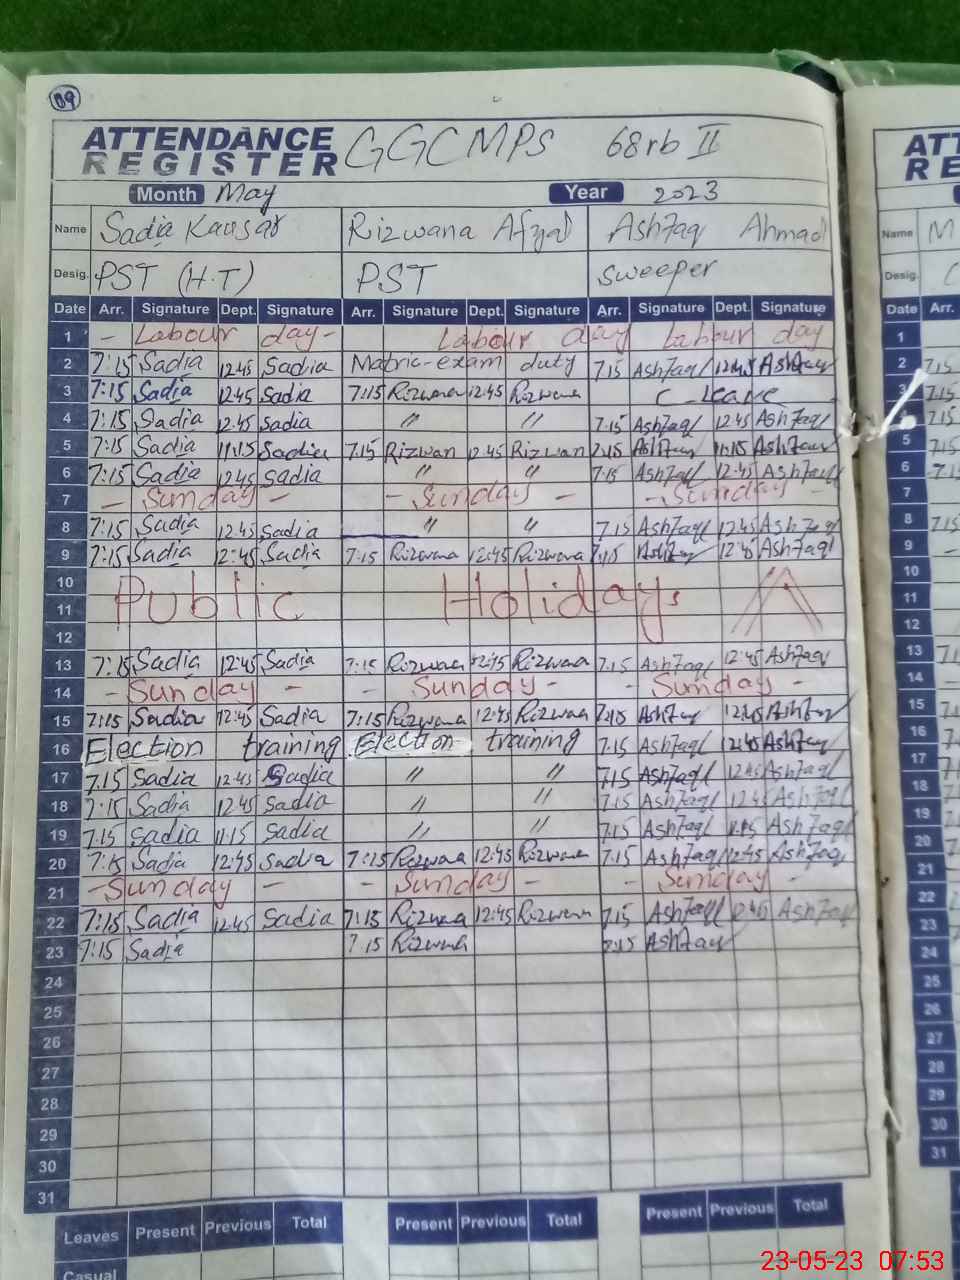 09
ATTENDANCE REGISTER GGCMPS 68rb II
Month May Year 2023
Name Sadia Kausar Rizwana Afzal Ashfaq Ahmad
Desig. PST (H.T) PST Sweeper
Date Arr. Signature Dept. Signature Arr. Signature Dept. Signature Arr. Signature Dept. Signature
1 - Labour day - Labour day Labour day
2 7:15 Sadia 12:45 Sadia Matric-exam duty 7.15 Ashfaq 12:45 Ashfaq
3 7:15 Sadia 12:45 Sadia 7:15 Rizwana 12:45 Rizwana C Leave
4 7:15 Sadia 12:45 Sadia " " 7.15 Ashfaq 12:45 Ashfaq
5 7:15 Sadia 11:15 Sadia 7.15 Rizwan 12:45 Rizwan 7:15 Ashfaq 11:15 Ashfaq
6 7:15 Sadia 12:45 Sadia " " 7.15 Ashfaq 12:45 Ashfaq
7 - Sunday - - Sunday - - Sunday -
8 7:15 Sadia 12:45 Sadia " " 7.15 Ashfaq 12:45 Ashfaq
9 7:15 Sadia 12:45 Sadia 7:15 Rizwana 12:45 Rizwana 7:15 Ashfaq 12:45 Ashfaq
10
11 Public Holidays
12
13 7:15 Sadia 12:45 Sadia 7:15 Rizwana 12:45 Rizwana 7.15 Ashfaq 12:45 Ashfaq
14 - Sunday - - Sunday - - Sunday -
15 7:15 Sadia 12:45 Sadia 7:15 Rizwana 12:45 Rizwana 7:15 Ashfaq 12:45 Ashfaq
16 Election training Election training 7.15 Ashfaq 12:45 Ashfaq
17 7.15 Sadia 12:45 Sadia " " 7.15 Ashfaq 12:45 Ashfaq
18 7:15 Sadia 12:45 Sadia " " 7.15 Ashfaq 12:45 Ashfaq
19 7.15 Sadia 11:15 Sadia " " 7.15 Ashfaq 11:15 Ashfaq
20 7:15 Sadia 12:45 Sadia 7:15 Rizwana 12:45 Rizwana 7.15 Ashfaq 12:45 Ashfaq
21 - Sunday - - Sunday - - Sunday -
22 7:15 Sadia 12:45 Sadia 7:15 Rizwana 12:45 Rizwana 7.15 Ashfaq 12:45 Ashfaq
23 7:15 Sadia 7:15 Rizwna 7:15 Ashfaq
24
25
26
27
28
29
30
31
Leaves Present Previous Total Present Previous Total Present Previous Total
Casual
Name M
Desig.
Date Arr.
1
2 7.15
3 7.15
2.15
5 7.15
6 7.15
7
8 7.15
9
10
11
12
13
14
15
16
17
18
19
20
21
22
23
24
25
26
27
28
29
30
31
23-05-23 07:53